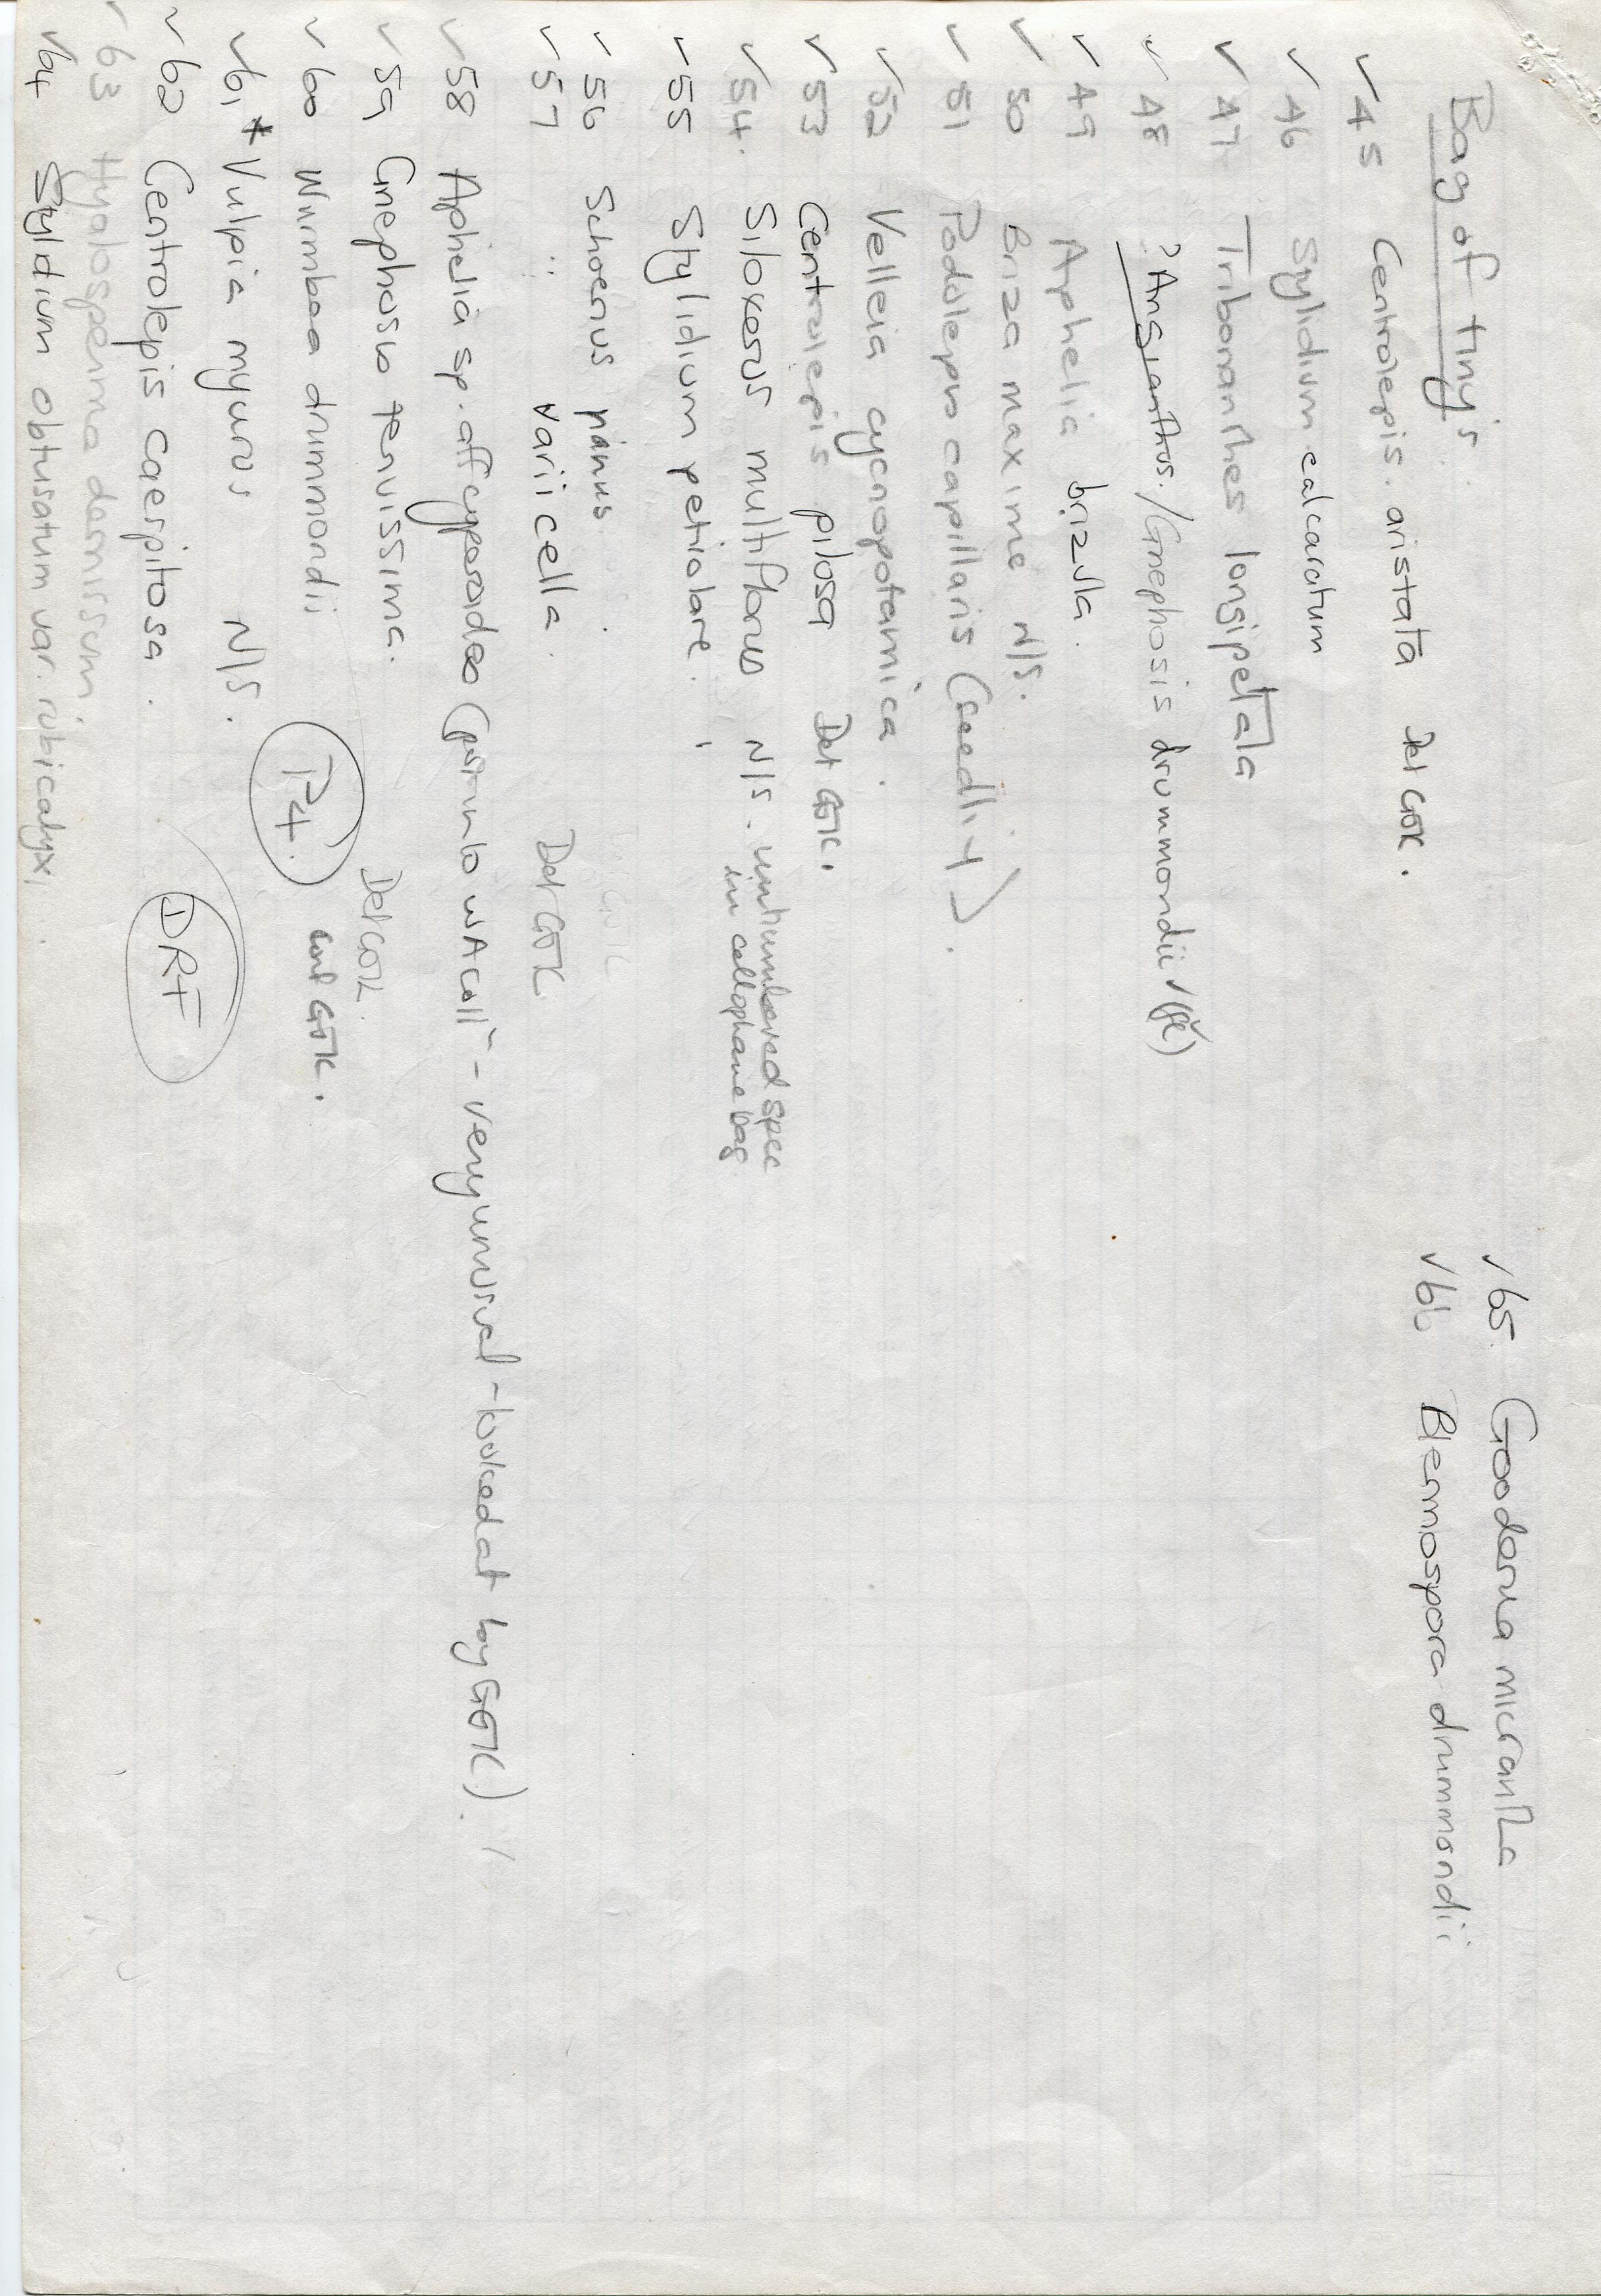 Bag of tiny's
✓ 45 Centrolepis. aristata Det GJK.
✓ 46 Stylidium calcaratum
✓ 47 Tribonanthes longipetala
✓ 48 ?Angianthus./Gnephosis drummondii ✓
✓ 49 Aphelia brizula.
✓ 50 Briza maxima N/S.
✓ 51 Podolepis capillaris (seedling).
✓ 52 Velleia cycnopotamica.
✓ 53 Centrolepis pilosa Det GJK.
✓ 54. Siloxerus multiflorus N/S. unnumbered spec
in cellophane bag
✓ 55 Stylidium petiolare.
✓ 56 Schoenus nanus.
✓ 57 " varii cella. Det GJK
✓ 58 Aphelia sp. aff cyperoides (put into WA Coll - very unusual - looked at by GJK).
✓ 59 Gnephosis tenuissima. Det GJK.
✓ 60 Wurmbea drummondii conf GJK.
✓ 61 * Vulpia myuros N/S. P4.
✓ 62 Centrolepis caespitosa. DRF
✓ 63 Hyalosperma demissum.
✓ 64 Stylidium obtusatum var. rubicalyx.
✓ 65. Goodenia micrantha
✓ 66 Blennospora drummondii